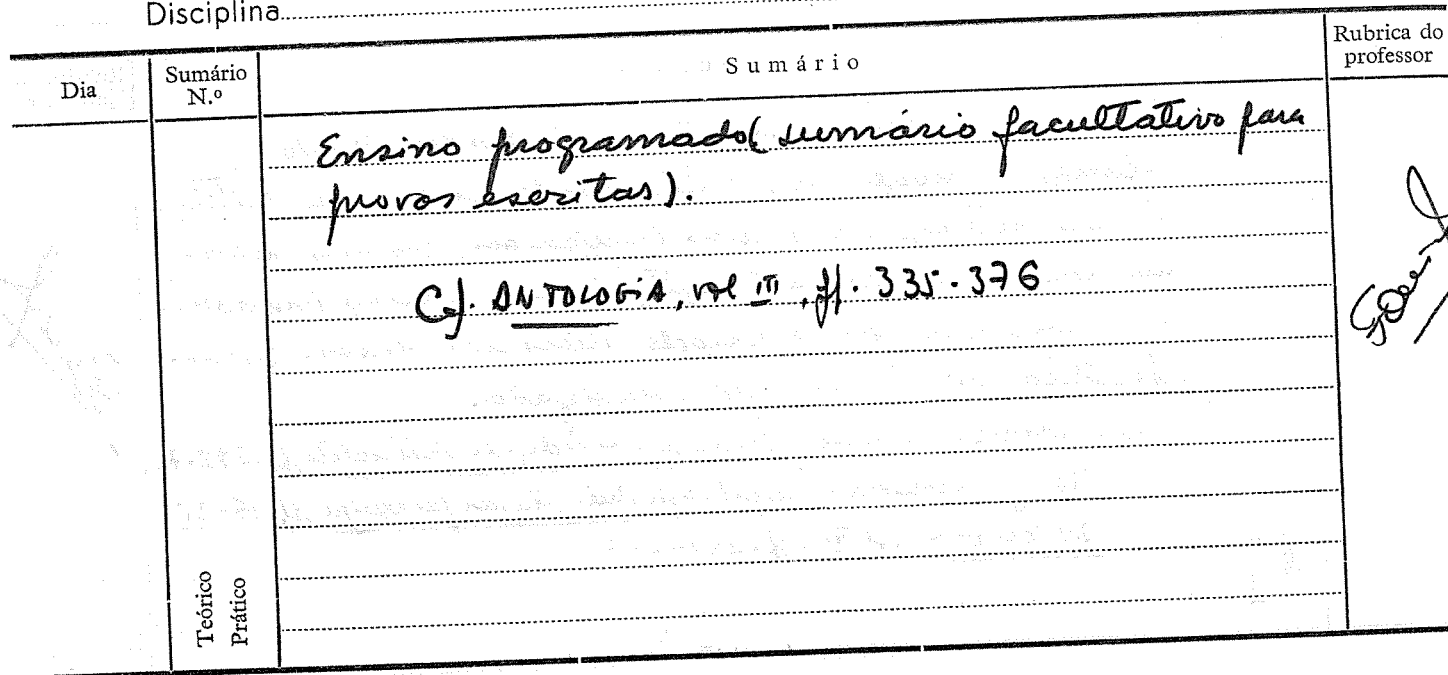 Disciplina
Dia
Sumário N.º
Sumário
Rubrica do professor
Ensino programado (sumário facultativo para
provas escritas).
Cf. ANTOLOGIA, vol III, ff. 335-376
Teórico
Prático